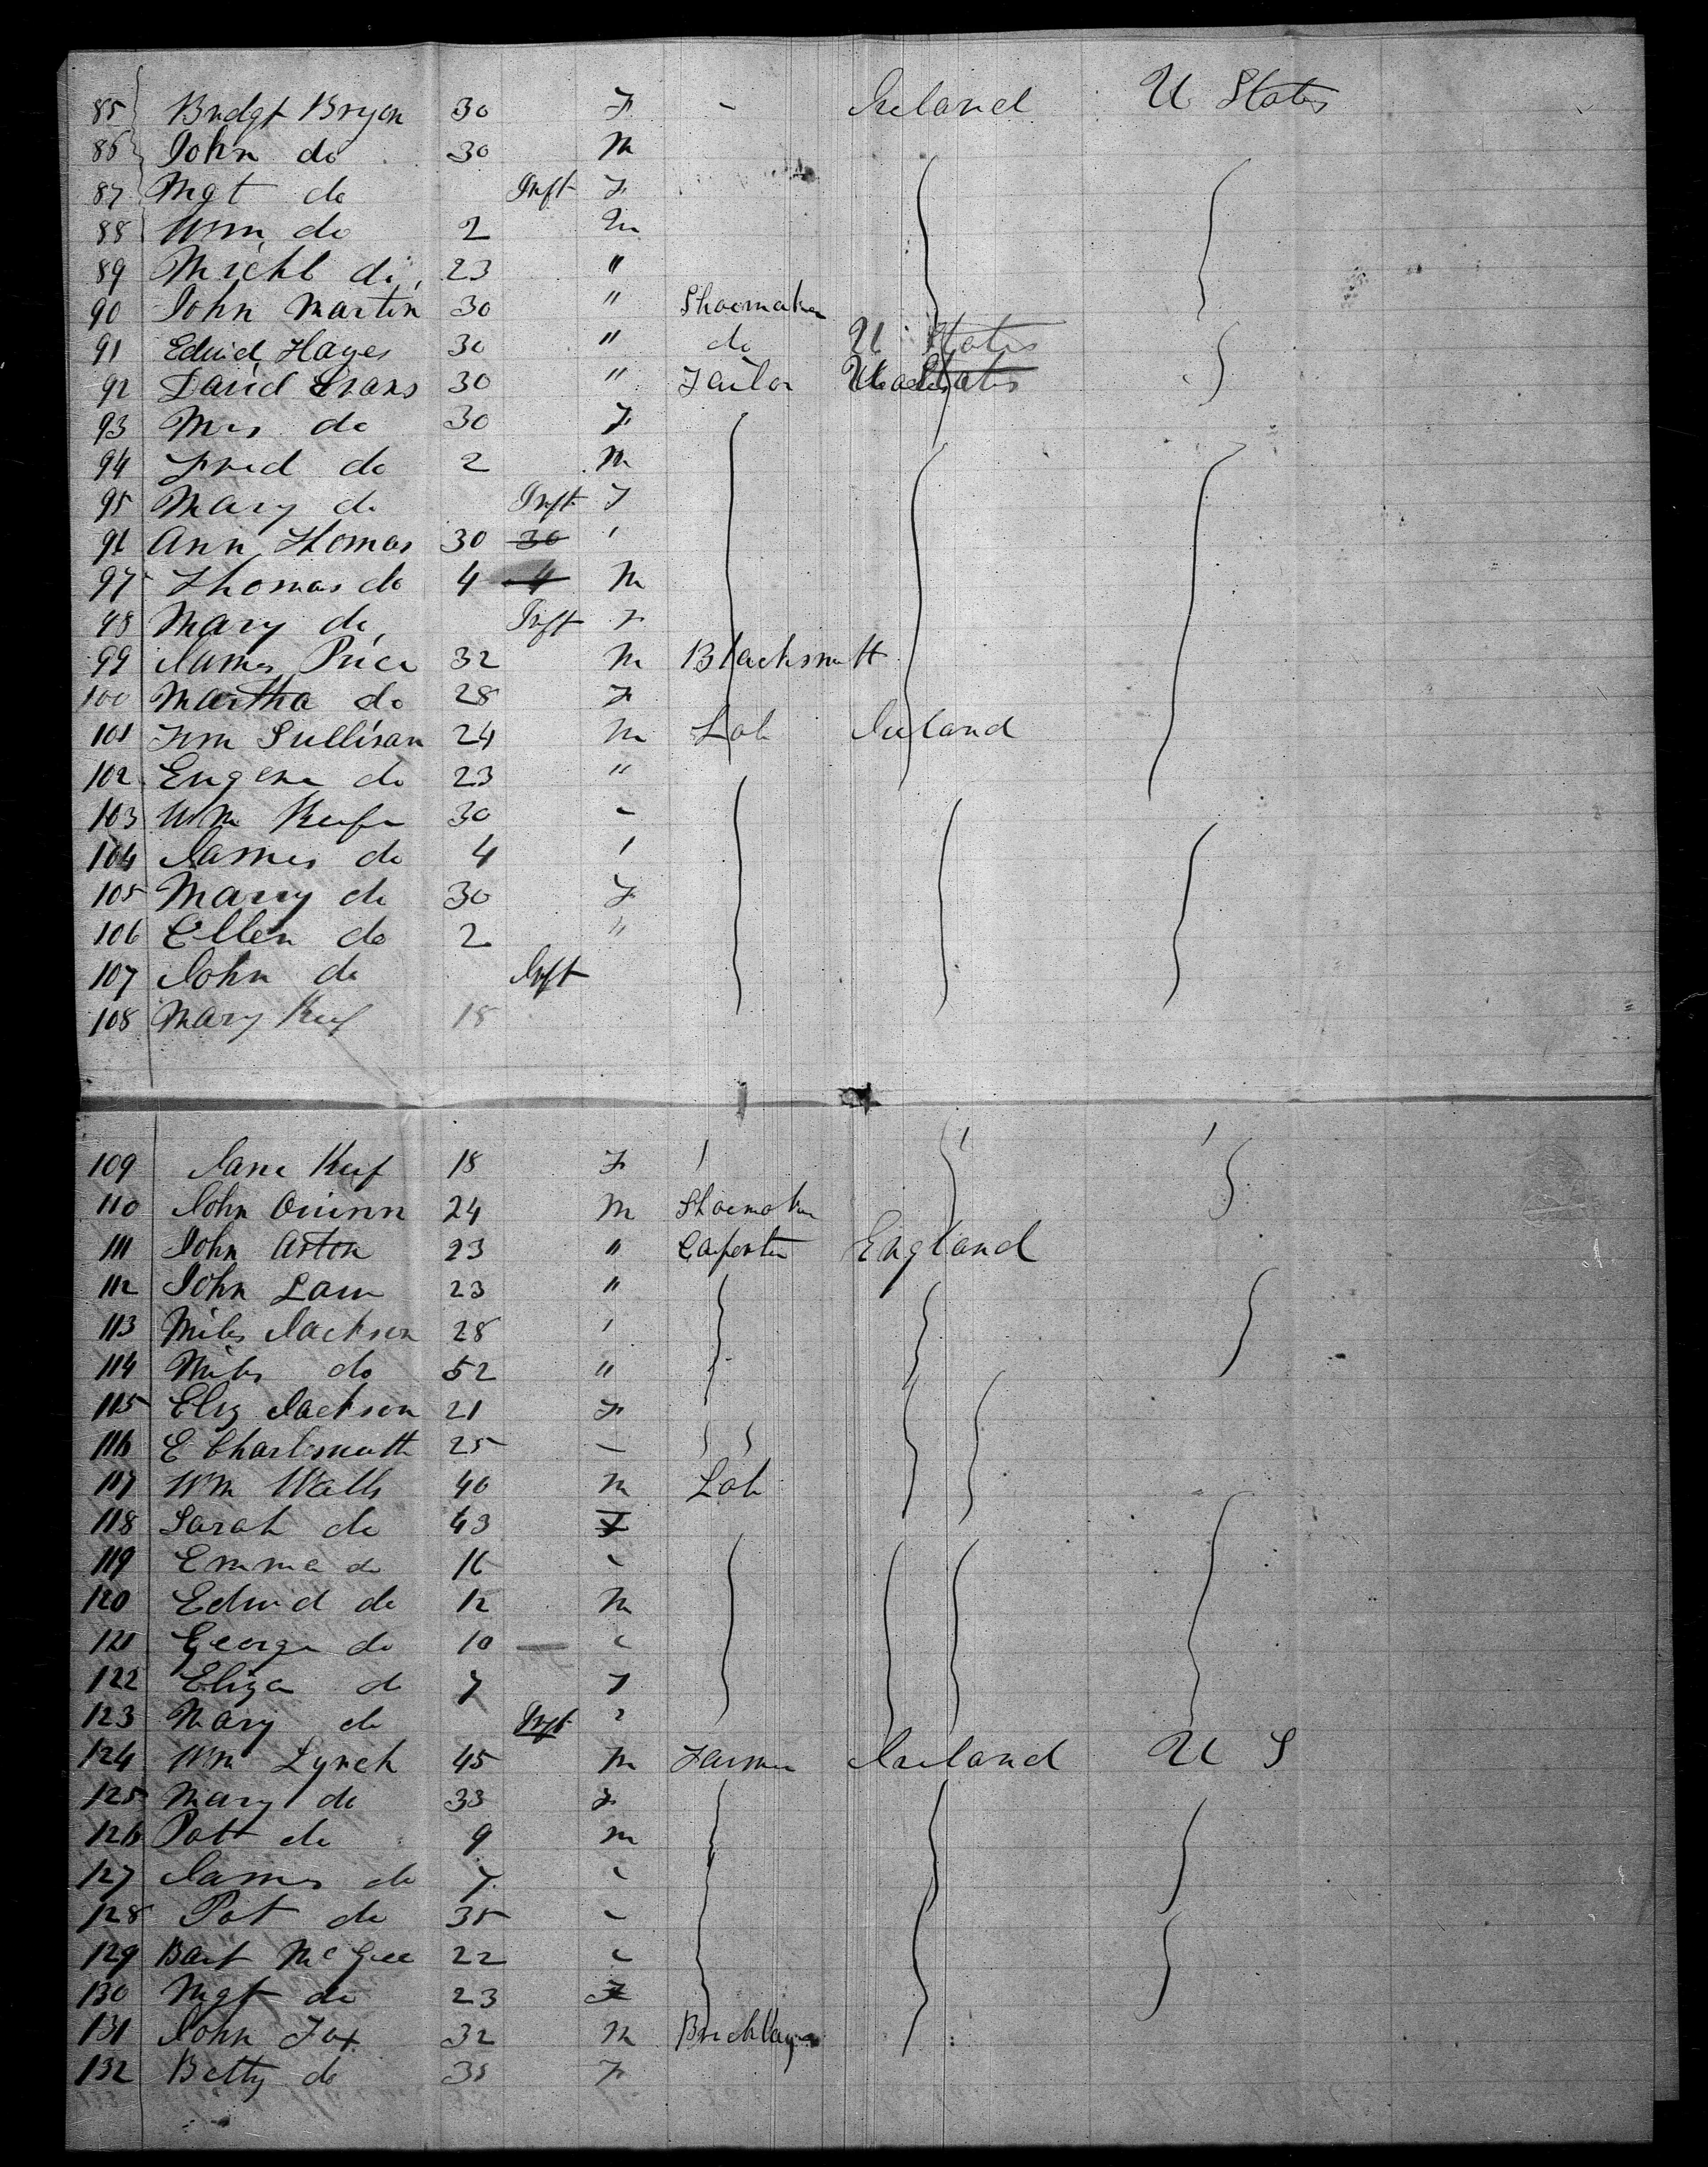 85 Bridgt Bryan 30 F - Ireland U States
86 John do 30 M
87 Mgt do Inft F
88 Wm do 2 M
89 Michl do 23 "
90 John Martin 30 " Shoemaker
91 Edwd Hayes 30 " do U States
92 David Evans 30 " Tailor
93 Mrs do 30 F
94 Fred do 2 M
95 Mary do Inft F
96 Ann Thomas 30 30 '
97 Thomas do 4 4 M
98 Mary do Inft F
99 James Price 32 M Blacksmith
100 Martha do 28 F
101 Tim Sullivan 24 M Lab Ireland
102 Eugene do 23 "
103 Wm Keefe 30 "
104 James do 4 '
105 Mary do 30 F
106 Ellen do 2 "
107 John do Inft
108 Mary Keef 18
109 Jane Keef 18 F
110 John Quinn 24 M Shoemaker
111 John Aston 23 " Carpenter England
112 John 23 "
113 Miles Jackson 28 '
114 Miles do 52 "
115 Eliz Jackson 21 F
116 E Charlesmith 25 -
117 Wm Walls 40 M Lab
118 Sarah do 43 F
119 Emma do 16 "
120 Edwd do 12 M
121 George do 10 "
122 Eliza do 7 F
123 Mary do Inft "
124 Wm Lynch 45 M Farmer Ireland U S
125 Mary do 33 F
126 Pat do 9 M
127 James do 7 "
128 Pat do 35 "
129 Bart McGee 22 "
130 Mgt do 23 F
131 John Fox 32 M Bricklayer
132 Betty do F